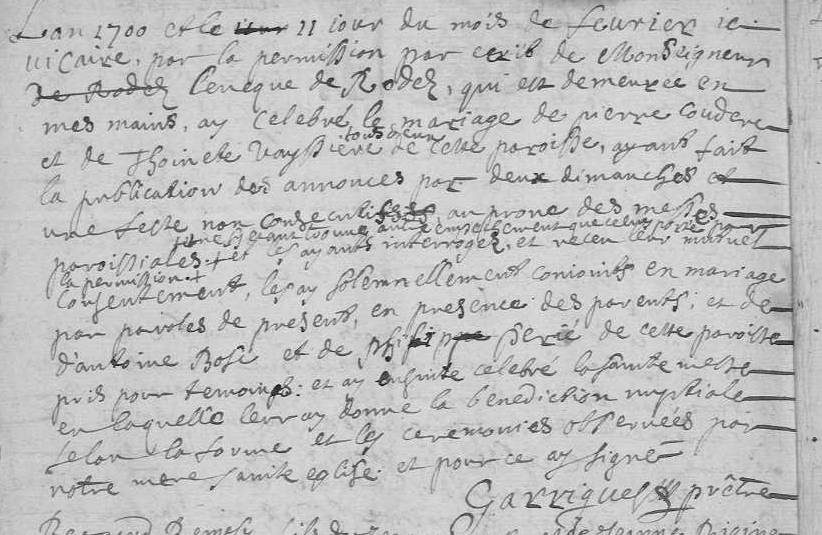 Lan 1700 et le 11 jour du mois de feurier ie
uicaire, par la permission par ecrib de Monseigneur
De Rodez leueque de Rodez, qui est demeuree en
mes mains, ay celebré le mariage de pierre couderc
tous deux
et de Thoinete Vayssiere de cette paroisse, ayant fait
la publication des annonces par deux dimanches et
une feste non consecutifs, au prone des messes
ne s'etant trouue autre empechement que celuy porté par
paroissiales + et les ayants interrogez, et receu leur mutuel
la permission +
consentement, les ay solemnellement conioints en mariage
par paroles de present, en presence des parents, et de
d'antoine Bose et de phisippe de cette paroisse
pris pour temoins: et ay ensuite celebré la sainte messe
en laquelle leur ay donné la benediction nuptiale
selon la forme et les ceremonies obseruées par
notre mere sainte eglise. et pour ce ay signé
Garrigues prêtre